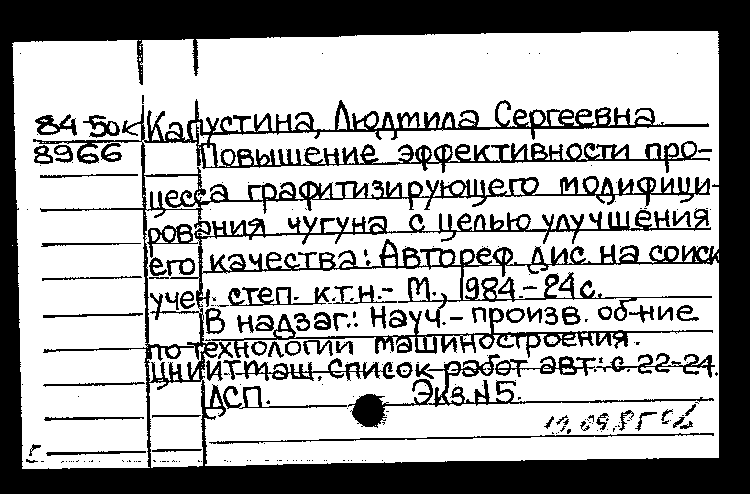 84-50к Капустина, Людмила Сергеевна.
8966 Повышение эффективности про-
цесса графитизирующего модифици-
рования чугуна с целью улучшения
его качества: Автореф. дис. на соиск
учен. степ. к.т.н.- М., 1984.-24с.
В надзаг.: Науч.-произв. об-ние
по технологии машиностроения.
ЦНИИТМаш. Список работ авт.: с. 22-24.
ДСП. Экз.№5.